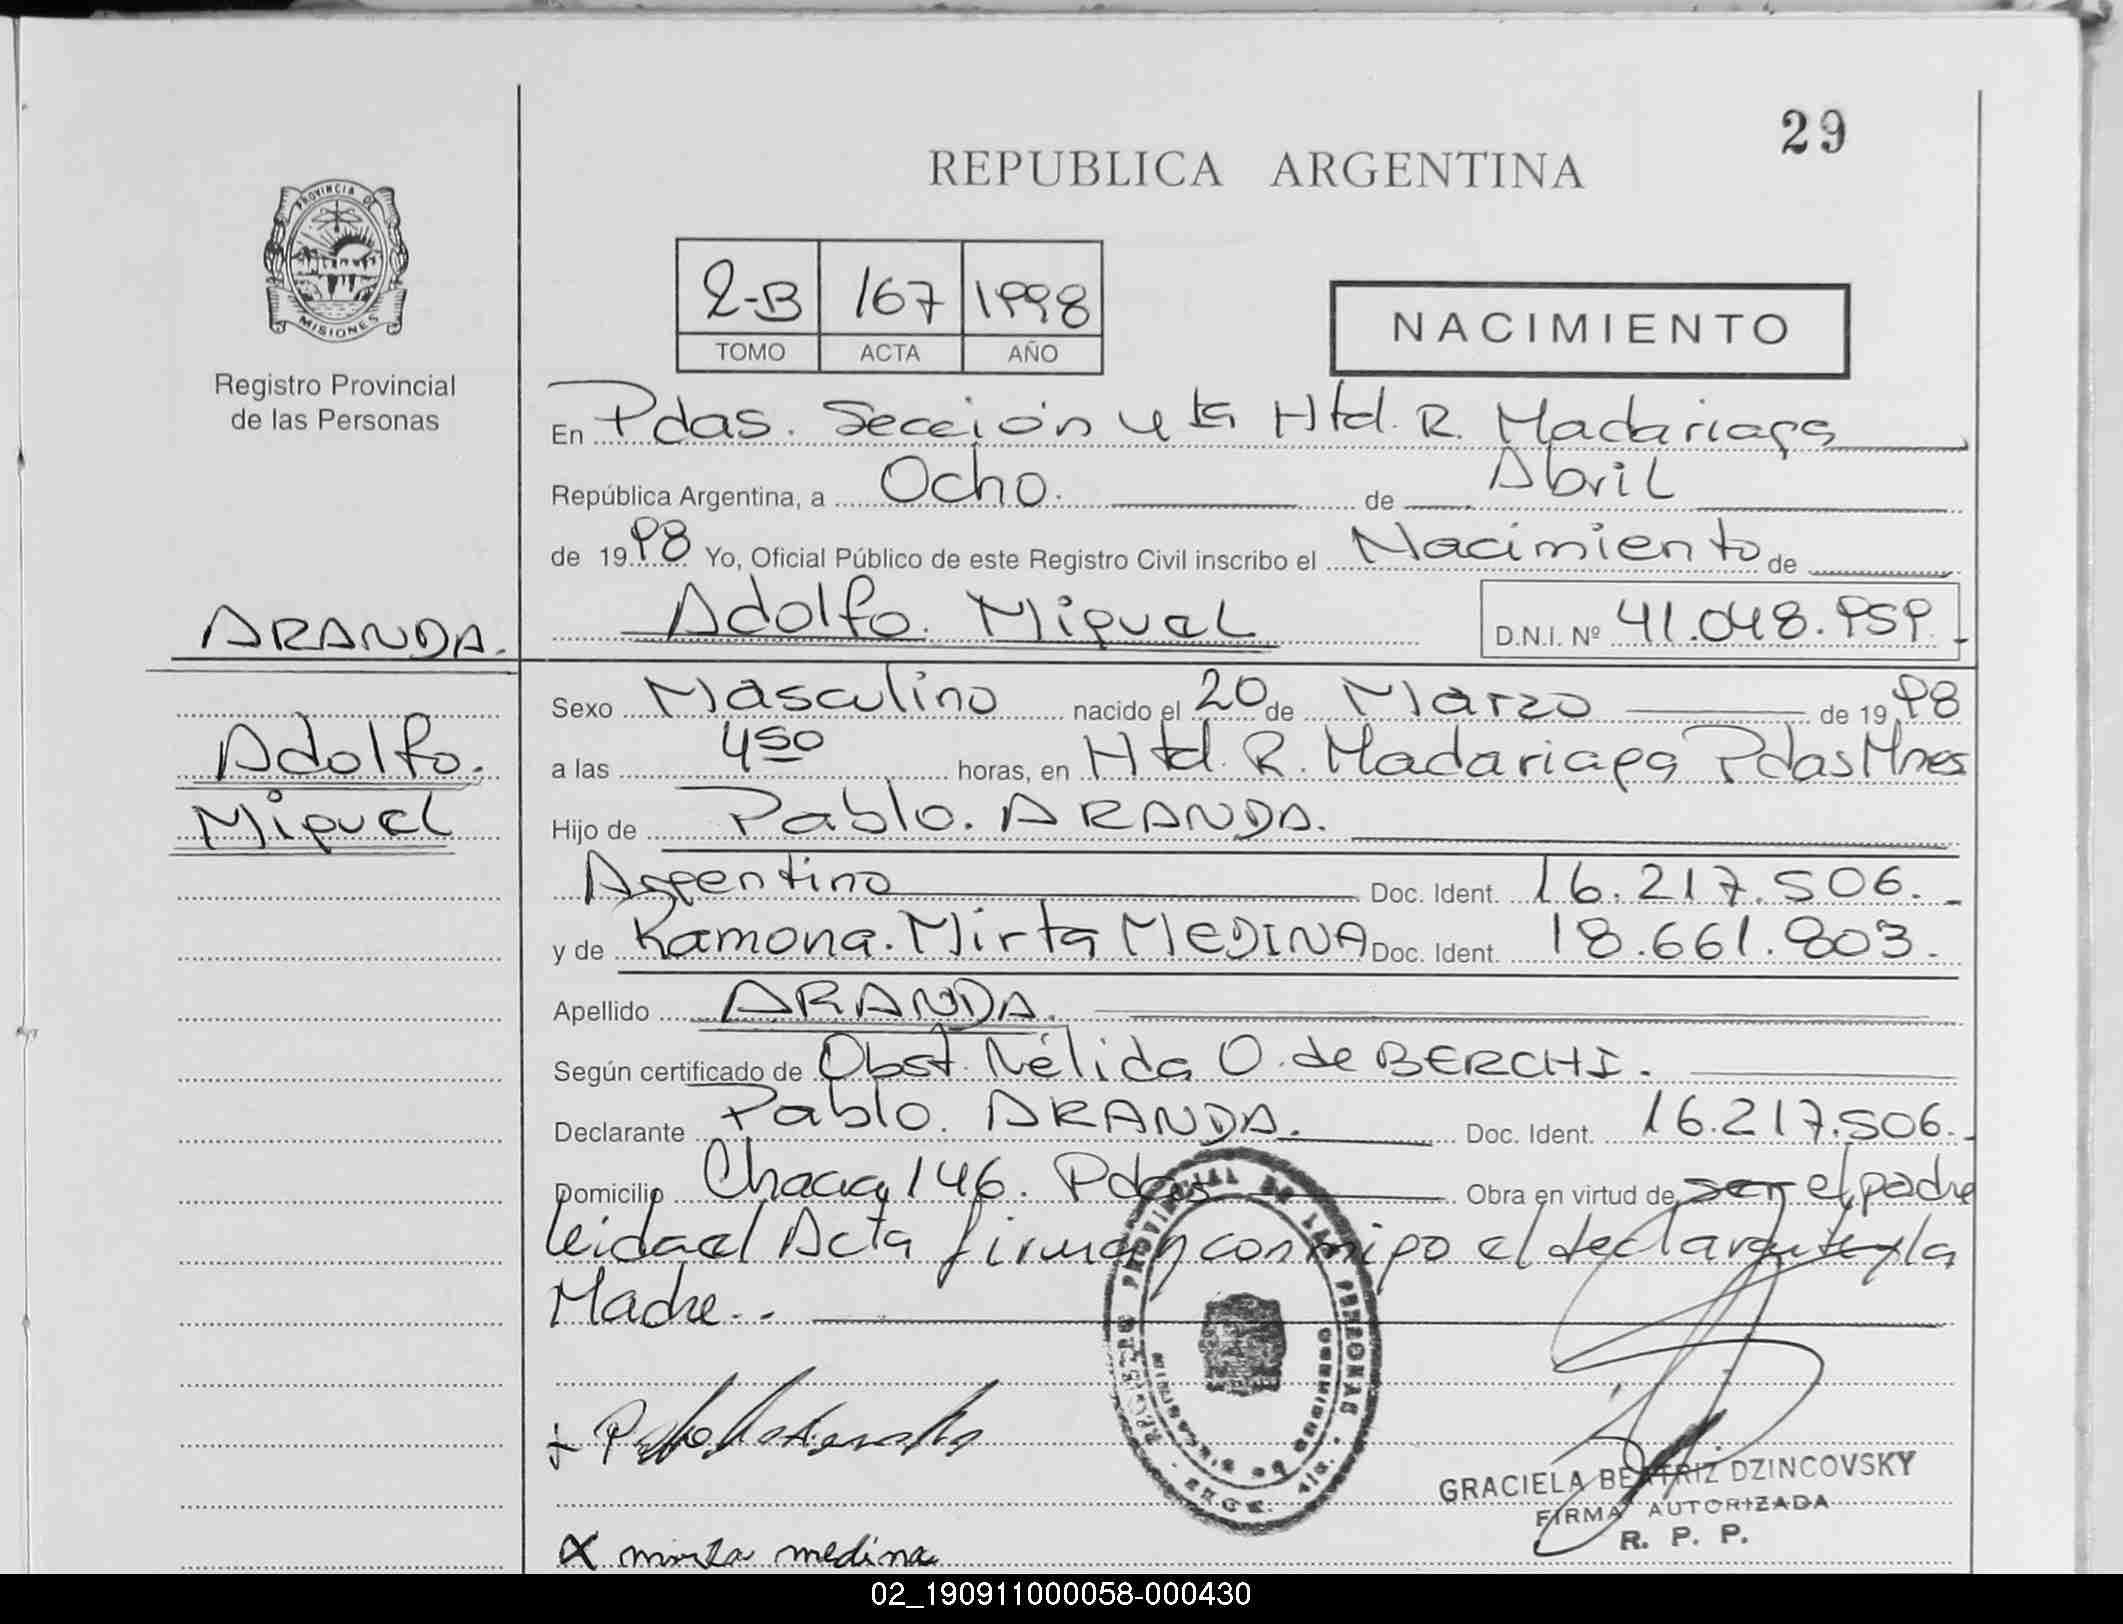 29
REPUBLICA ARGENTINA
PROVINCIA DE
MISIONES
Registro Provincial
de las Personas
2-B 167 1998
TOMO ACTA AÑO
NACIMIENTO
En Pdas. Sección 4ta Htd. R. Madariaga
República Argentina, a Ocho. de Abril
de 1998 Yo, Oficial Público de este Registro Civil inscribo el Nacimiento de
Adolfo. Miguel D.N.I. Nº 41.048.959.
ARANDA.
Adolfo.
Miguel
Sexo Masculino nacido el 20 de Marzo de 1998
a las 4 50 horas, en Htd. R. Madariaga Pdas Mnes
Hijo de Pablo. ARANDA.
Argentino Doc. Ident. 16.217.506.
y de Ramona. Mirta MEDINA Doc. Ident. 18.661.803.
Apellido ARANDA.
Según certificado de Obst. Nélida O. de BERCHI.
Declarante Pablo. ARANDA. Doc. Ident. 16.217.506.
Domicilio Chaca 146. Pdas Obra en virtud de ser el padre
leida el Acta firman conmigo el declarante y la
Madre..
REGISTRO PROVINCIAL DE LAS PERSONAS
GRACIELA BEATRIZ DZINCOVSKY
FIRMA AUTORIZADA
R. P. P.
x mirta medina
02_190911000058-000430